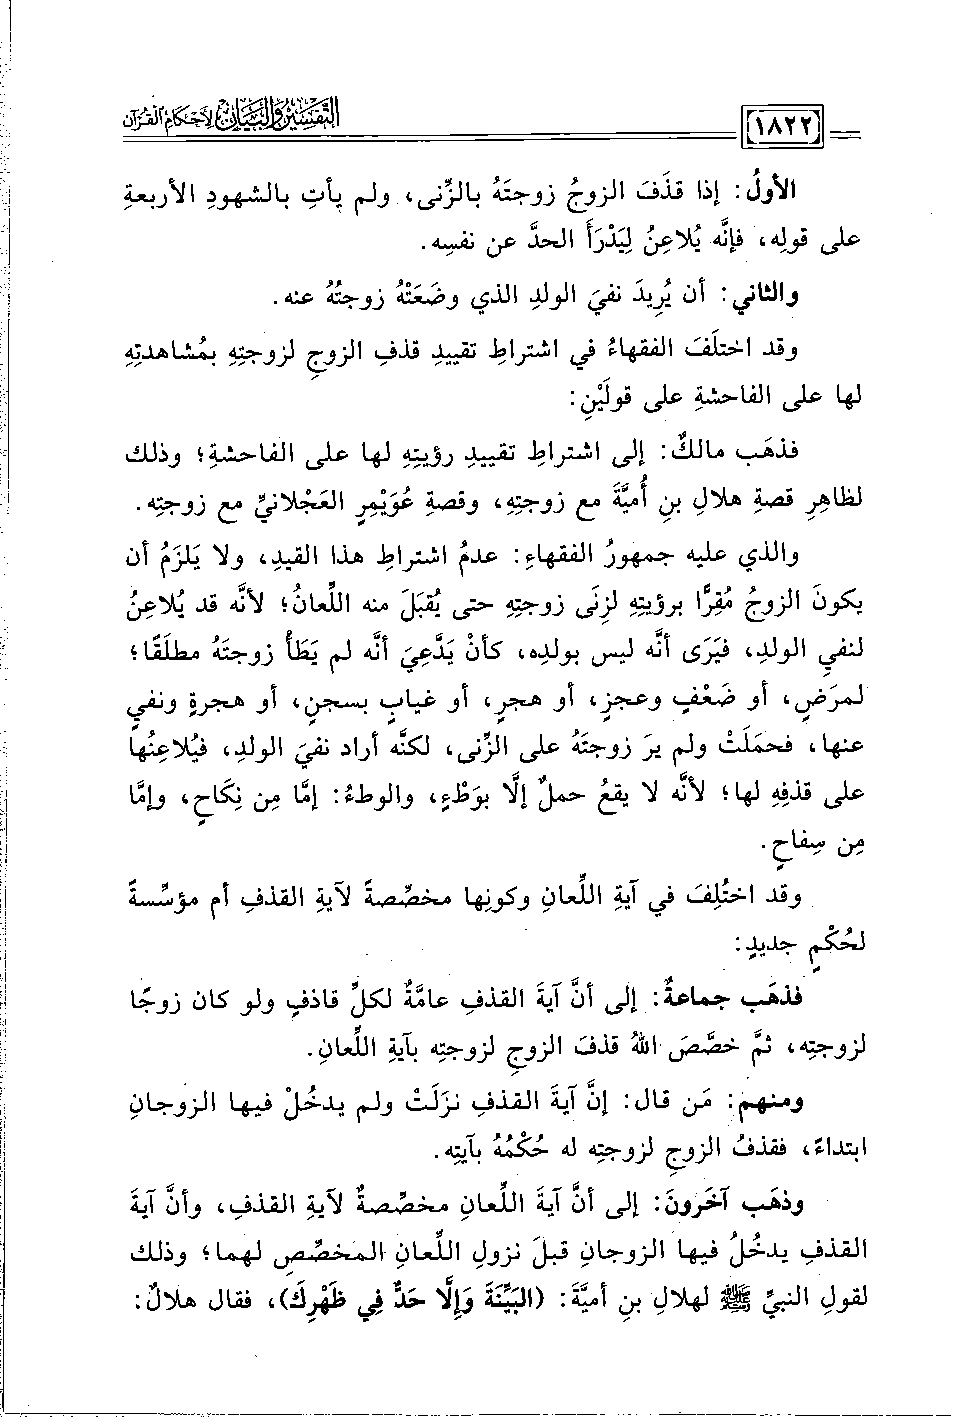 [١٨٢٢]
التفسير والبيان لأحكام القرآن
الأولُ: إذا قذَفَ الزوجُ زوجتَهُ بالزِّنى، ولم يأتِ بالشهودِ الأربعةِ
على قولِه، فإنَّه يُلاعِنُ لِيَدْرَأَ الحدَّ عن نفسِه.
والثاني: أن يُرِيدَ نفيَ الولدِ الذي وضَعَتْهُ زوجتُهُ عنه.
وقد اختلَفَ الفقهاءُ في اشتراطِ تقييدِ قذفِ الزوجِ لزوجتِهِ بمُشاهدتِهِ
لها على الفاحشةِ على قولَيْنِ:
فذهَب مالكٌ: إلى اشتراطِ تقييدِ رؤيتِهِ لها على الفاحشةِ؛ وذلك
لظاهِرِ قصةِ هلالِ بنِ أُميَّةَ مع زوجتِهِ، وقصةِ عُوَيْمِرٍ العَجْلانيِّ مع زوجتِه.
والذي عليه جمهورُ الفقهاءِ: عدمُ اشتراطِ هذا القيدِ، ولا يَلزَمُ أن
يكونَ الزوجُ مُقِرًّا برؤيتِهِ لزِنَى زوجتِهِ حتى يُقبَلَ منه اللِّعانُ؛ لأنَّه قد يُلاعِنُ
لنفيِ الولدِ، فيَرَى أنَّه ليس بولدِه، كأنْ يَدَّعِيَ أنَّه لم يَطَأْ زوجتَهُ مطلَقًا؛
لمرَضٍ، أو ضَعْفٍ وعجزٍ، أو هجرٍ، أو غيابٍ بسجنٍ، أو هجرةٍ ونفيٍ
عنها، فحمَلَتْ ولم يرَ زوجتَهُ على الزِّنى، لكنَّه أراد نفيَ الولدِ، فيُلاعِنُها
على قذفِهِ لها؛ لأنَّه لا يقعُ حملٌ إلَّا بوَطْءٍ، والوطءُ: إمَّا مِن نِكَاحٍ، وإمَّا
مِن سِفاحٍ.
وقد اختُلِفَ في آيةِ اللِّعانِ وكونِها مخصِّصةً لآيةِ القذفِ أم مؤسِّسةً
لحُكْمٍ جديدٍ:
فذهَب جماعةٌ: إلى أنَّ آيةَ القذفِ عامَّةٌ لكلِّ قاذفٍ ولو كان زوجًا
لزوجتِه، ثمَّ خصَّصَ اللهُ قذفَ الزوجِ لزوجتِه بآيةِ اللِّعانِ.
ومنهم: مَن قال: إنَّ آيةَ القذفِ نزَلَتْ ولم يدخُلْ فيها الزوجانِ
ابتداءً، فقذفُ الزوجِ لزوجتِه له حُكْمُهُ بآيتِه.
وذهَب آخَرونَ: إلى أنَّ آيةَ اللِّعانِ مخصِّصةٌ لآيةِ القذفِ، وأنَّ آيةَ
القذفِ يدخُلُ فيها الزوجانِ قبلَ نزولِ اللِّعانِ المخصِّصِ لهما؛ وذلك
لقولِ النبيِّ ﷺ لهلالِ بنِ أميَّةَ: (البَيِّنَةَ وَإِلَّا حَدٌّ فِي ظَهْرِكَ)، فقال هلالٌ: